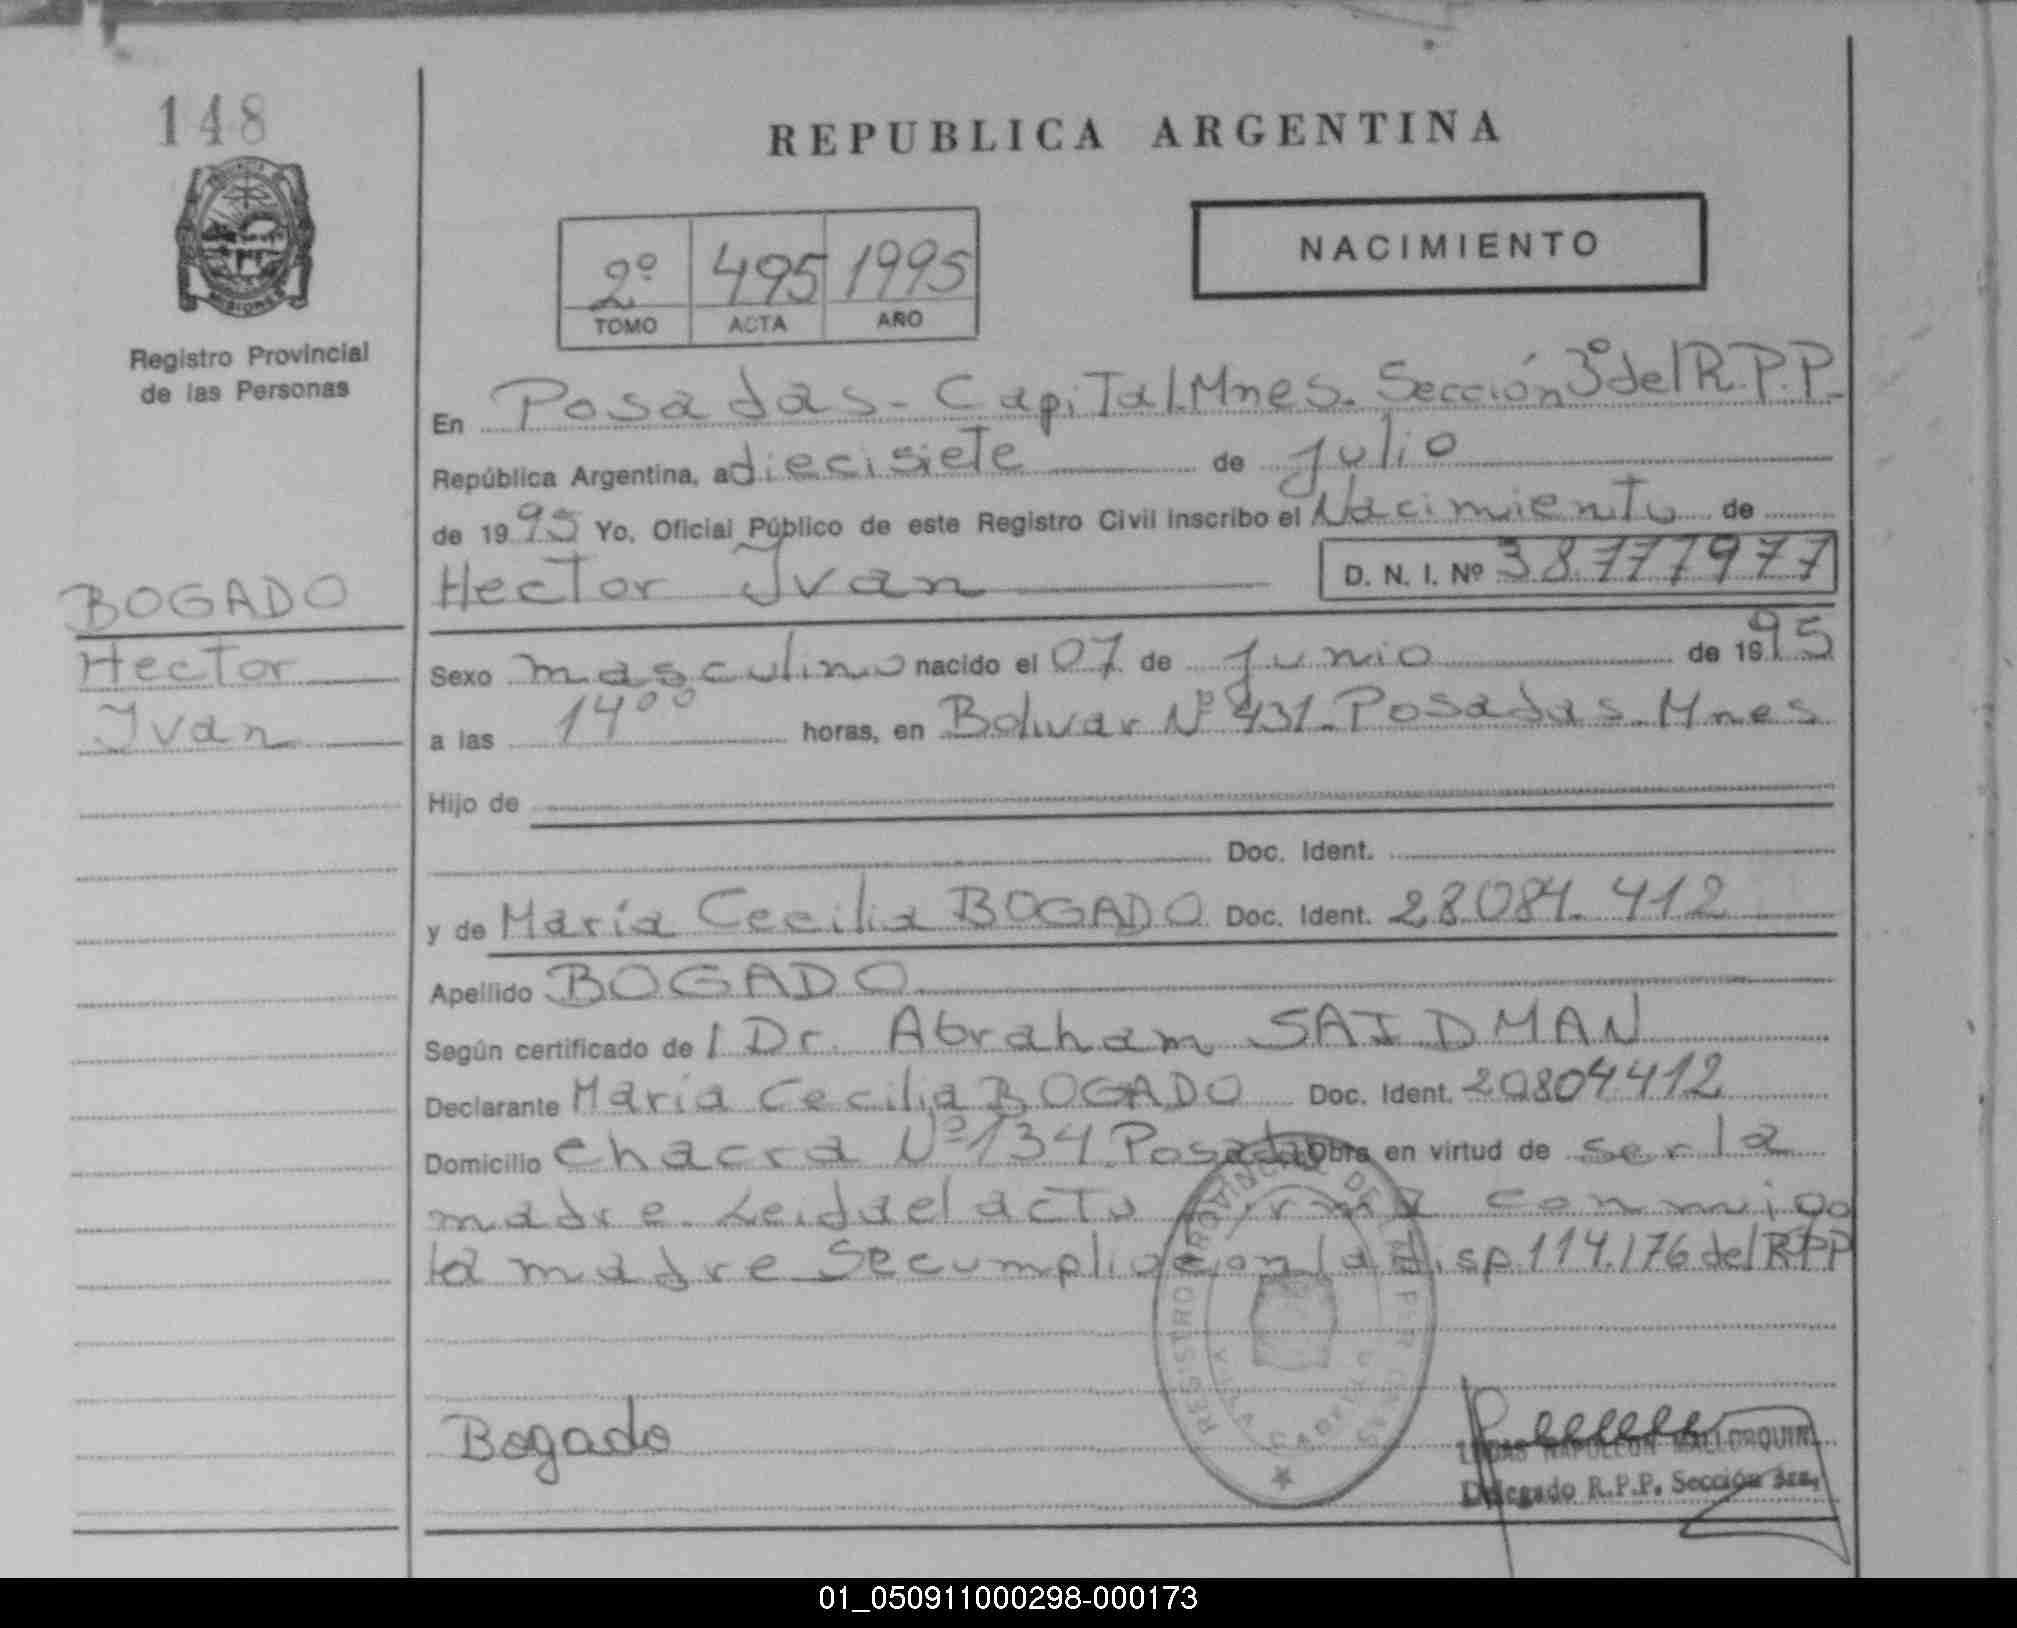 148
REPUBLICA ARGENTINA
NACIMIENTO
2º 495 1995
TOMO ACTA AÑO
MISIONES
Registro Provincial
de las Personas
En Posadas - Capital. Mnes. Sección 3º del R.P.P.
República Argentina, a diecisiete de Julio
de 1995 Yo, Oficial Público de este Registro Civil inscribo el Nacimiento de
Hector Ivan D. N. I. Nº 38.777977
BOGADO
Hector
Ivan
Sexo masculino nacido el 07 de Junio de 1995
a las 14⁰⁰ horas, en Bolivar Nº 431. Posadas. Mnes
Hijo de
Doc. Ident.
y de María Cecilia BOGADO Doc. Ident. 28.084.412
Apellido BOGADO
Según certificado del Dr. Abraham SAIDMAN
Declarante María Cecilia BOGADO Doc. Ident. 20804412
Domicilio Chacra Nº 134 Posadas Obra en virtud de ser la
madre. Leida el acta firma conmigo
la madre Se cumplio con la disp. 114.176 del RPP
REGISTRO PROVINCIAL DE LAS PERSONAS
Bogado
LUCAS NAPOLEON MALLORQUIN
Delegado R.P.P. Sección 3ra.
01_050911000298-000173